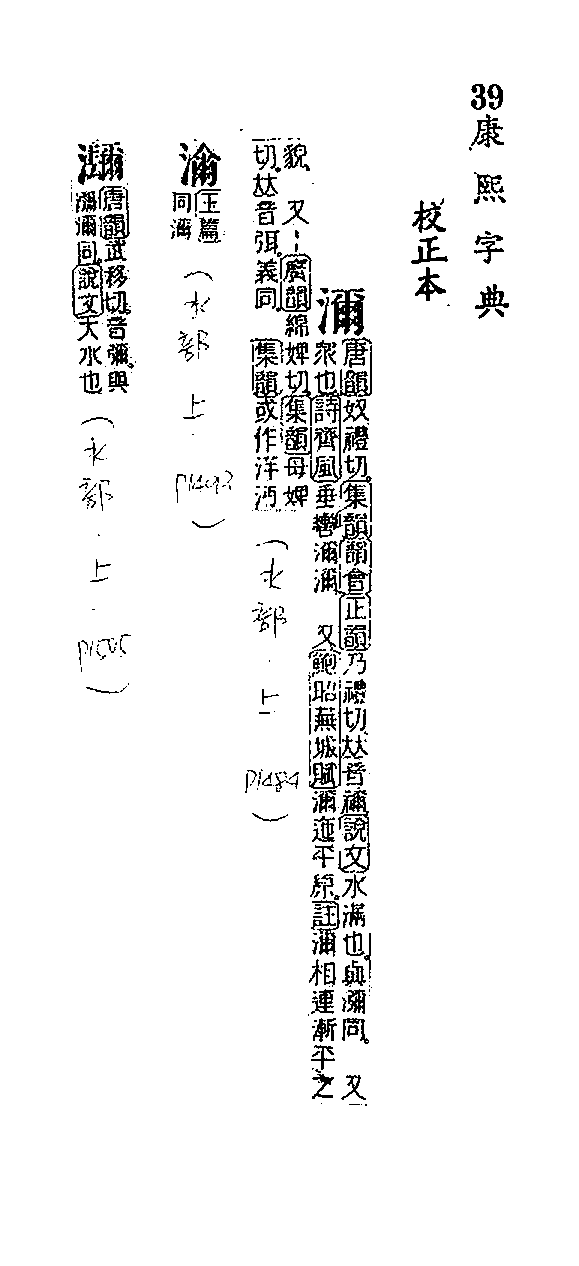 39康熙字典
校正本
濔
唐韻奴禮切集韻韻會正韻乃禮切𠀤音禰說文水滿也與瀰同　又
衆也詩齊風垂轡濔濔　又鮑昭蕪城賦濔迆平原註濔相連漸平之
貌　又丨廣韻綿婢切集韻母婢
切𠀤音弭義同　集韻或作洋沔
(水部．上．P1484)
㴽
玉篇
同濔
(水部．上．P1492)
瀰
唐韻武移切音彌與
瀰同說文大水也
(水部．上．P1505)